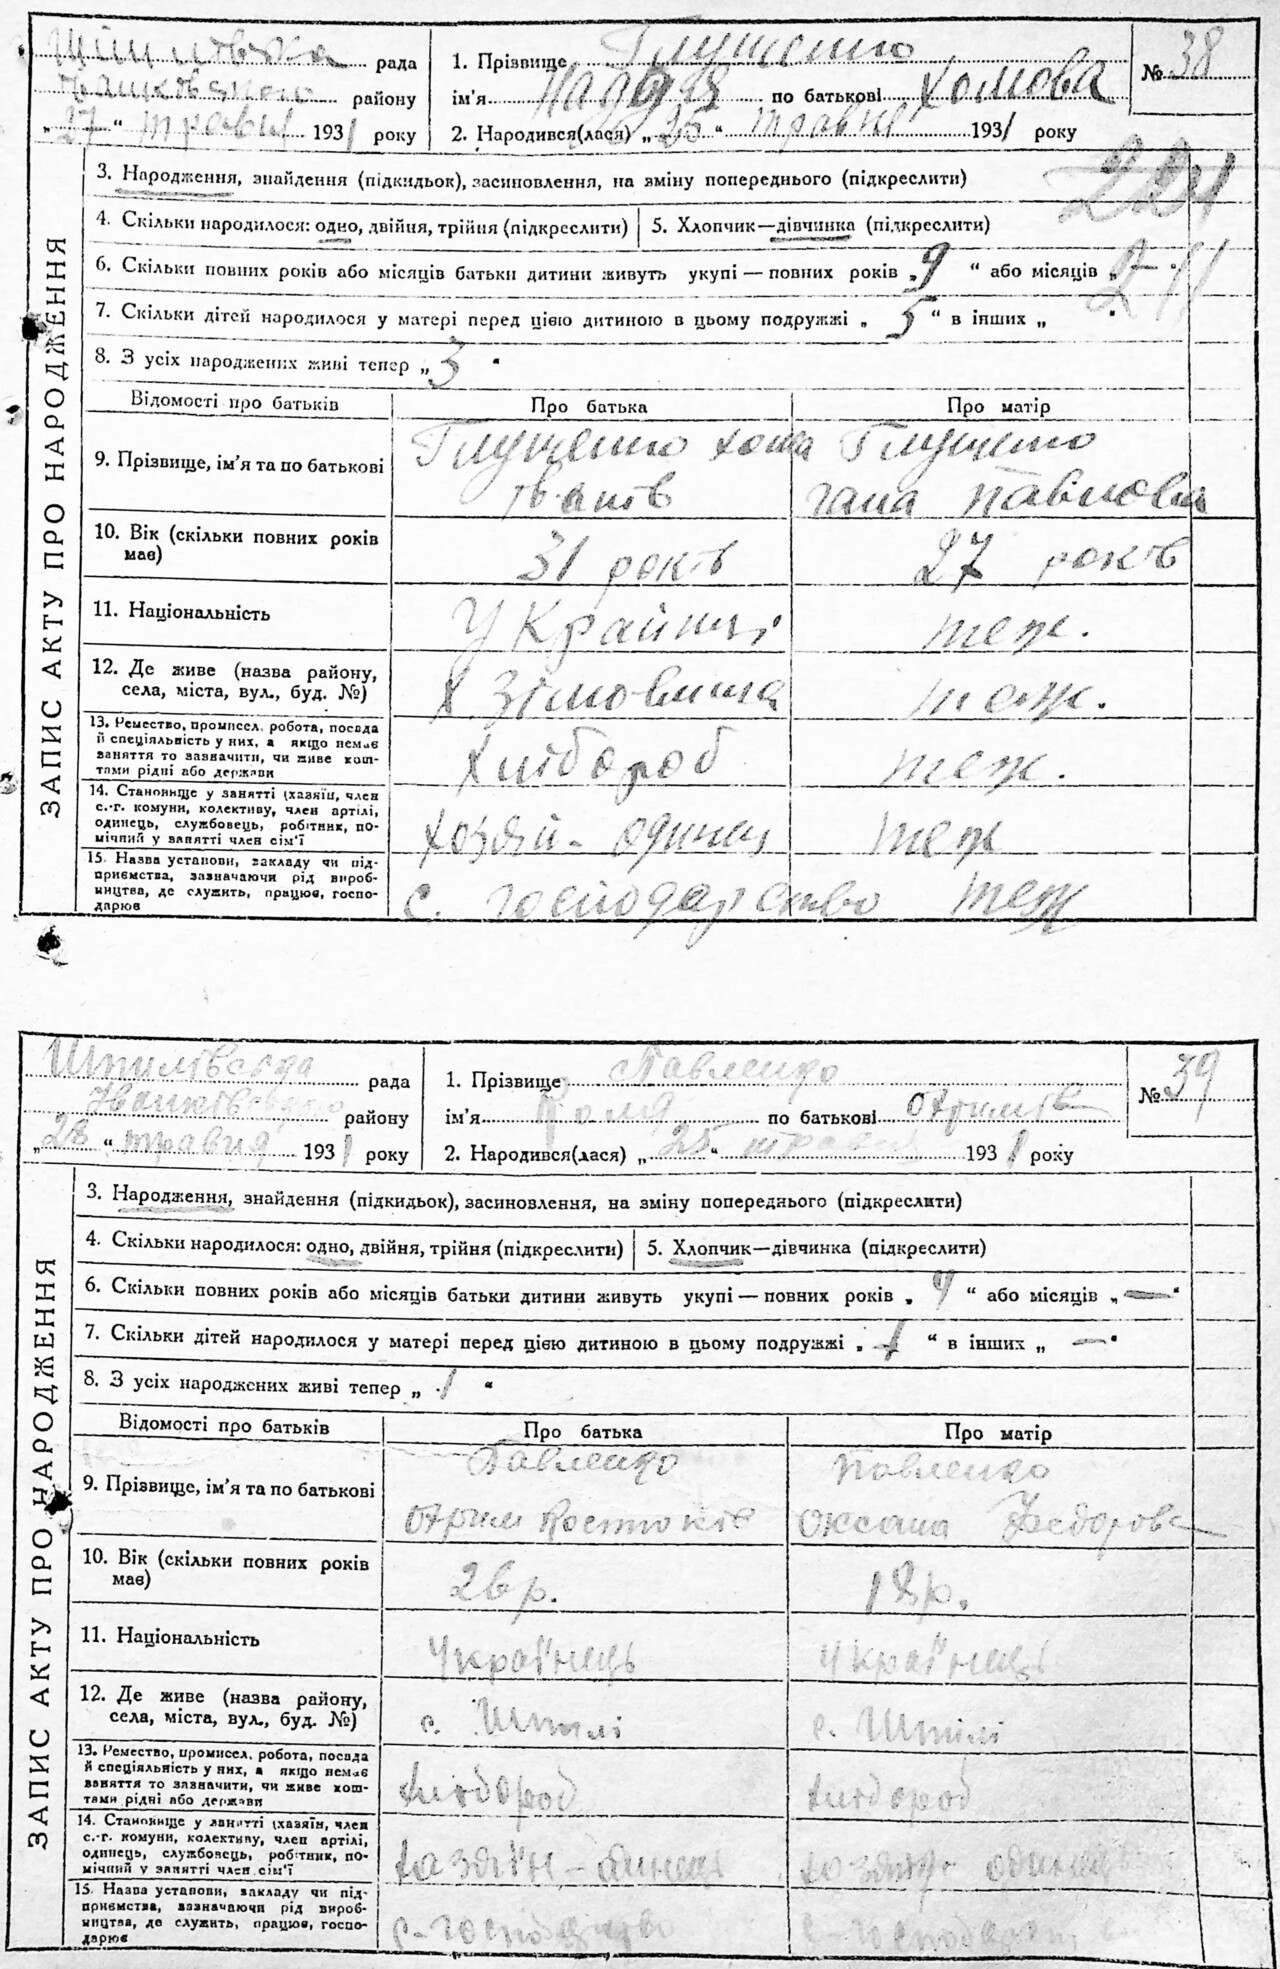 Шпилівська рада
Іванківського району
„27“ травня 1931 року
1. Прізвище Глущенко
ім'я Надія по батькові Хомова
2. Народився(лася) „25“ травня 1931 року
№ 38
ЗАПИС АКТУ ПРО НАРОДЖЕННЯ
3. Народження, знайдення (підкидьок), засиновлення, на зміну попереднього (підкреслити)
221
4. Скільки народилося: одно, двійня, трійня (підкреслити) 5. Хлопчик—дівчинка (підкреслити)
6. Скільки повних років або місяців батьки дитини живуть укупі — повних років „9“ або місяців „
211
7. Скільки дітей народилося у матері перед цією дитиною в цьому подружжі „5“ в інших „ “
8. З усіх народжених живі тепер „3“
Відомості про батьків Про батька Про матір
9. Прізвище, ім'я та по батькові Глущенко Хома Іванів Глущенко Гана Павлова
10. Вік (скільки повних років має) 31 років 27 років
11. Національність Українці теж.
12. Де живе (назва району, села, міста, вул., буд. №) х теж.
13. Ремество, промисел, робота, посада й спеціяльність у них, а якщо немає заняття то зазначити, чи живе коштами рідні або держави Хлібороб теж.
14. Становище у занятті (хазяїн, член с.-г. комуни, колективу, член артілі, одинець, службовець, робітник, помічний у занятті член сім'ї хозяй-одинец теж
15. Назва установи, закладу чи підприємства, зазначаючи рід виробництва, де служить, працює, господарює с. господарство теж
Шпилівська рада
Іванківського району
„28“ травня 1931 року
1. Прізвище Павленко
ім'я по батькові Охримів
2. Народився(лася) „25“ травня 1931 року
№ 39
ЗАПИС АКТУ ПРО НАРОДЖЕННЯ
3. Народження, знайдення (підкидьок), засиновлення, на зміну попереднього (підкреслити)
4. Скільки народилося: одно, двійня, трійня (підкреслити) 5. Хлопчик—дівчинка (підкреслити)
6. Скільки повних років або місяців батьки дитини живуть укупі — повних років „ “ або місяців „—“
7. Скільки дітей народилося у матері перед цією дитиною в цьому подружжі „1“ в інших „—“
8. З усіх народжених живі тепер „1“
Відомості про батьків Про батька Про матір
9. Прізвище, ім'я та по батькові Павленко Охрим Павленко Оксана Федорова
10. Вік (скільки повних років має) 26 р. 18 р.
11. Національність Українець українець
12. Де живе (назва району, села, міста, вул., буд. №) с. Шпилі с. Шпілі
13. Ремество, промисел, робота, посада й спеціяльність у них, а якщо немає заняття то зазначити, чи живе коштами рідні або держави хлібороб хлібороб
14. Становище у занятті (хазяїн, член с.-г. комуни, колективу, член артілі, одинець, службовець, робітник, помічний у занятті член сім'ї хазяїн-одинець одинець
15. Назва установи, закладу чи підприємства, зазначаючи рід виробництва, де служить, працює, господарює